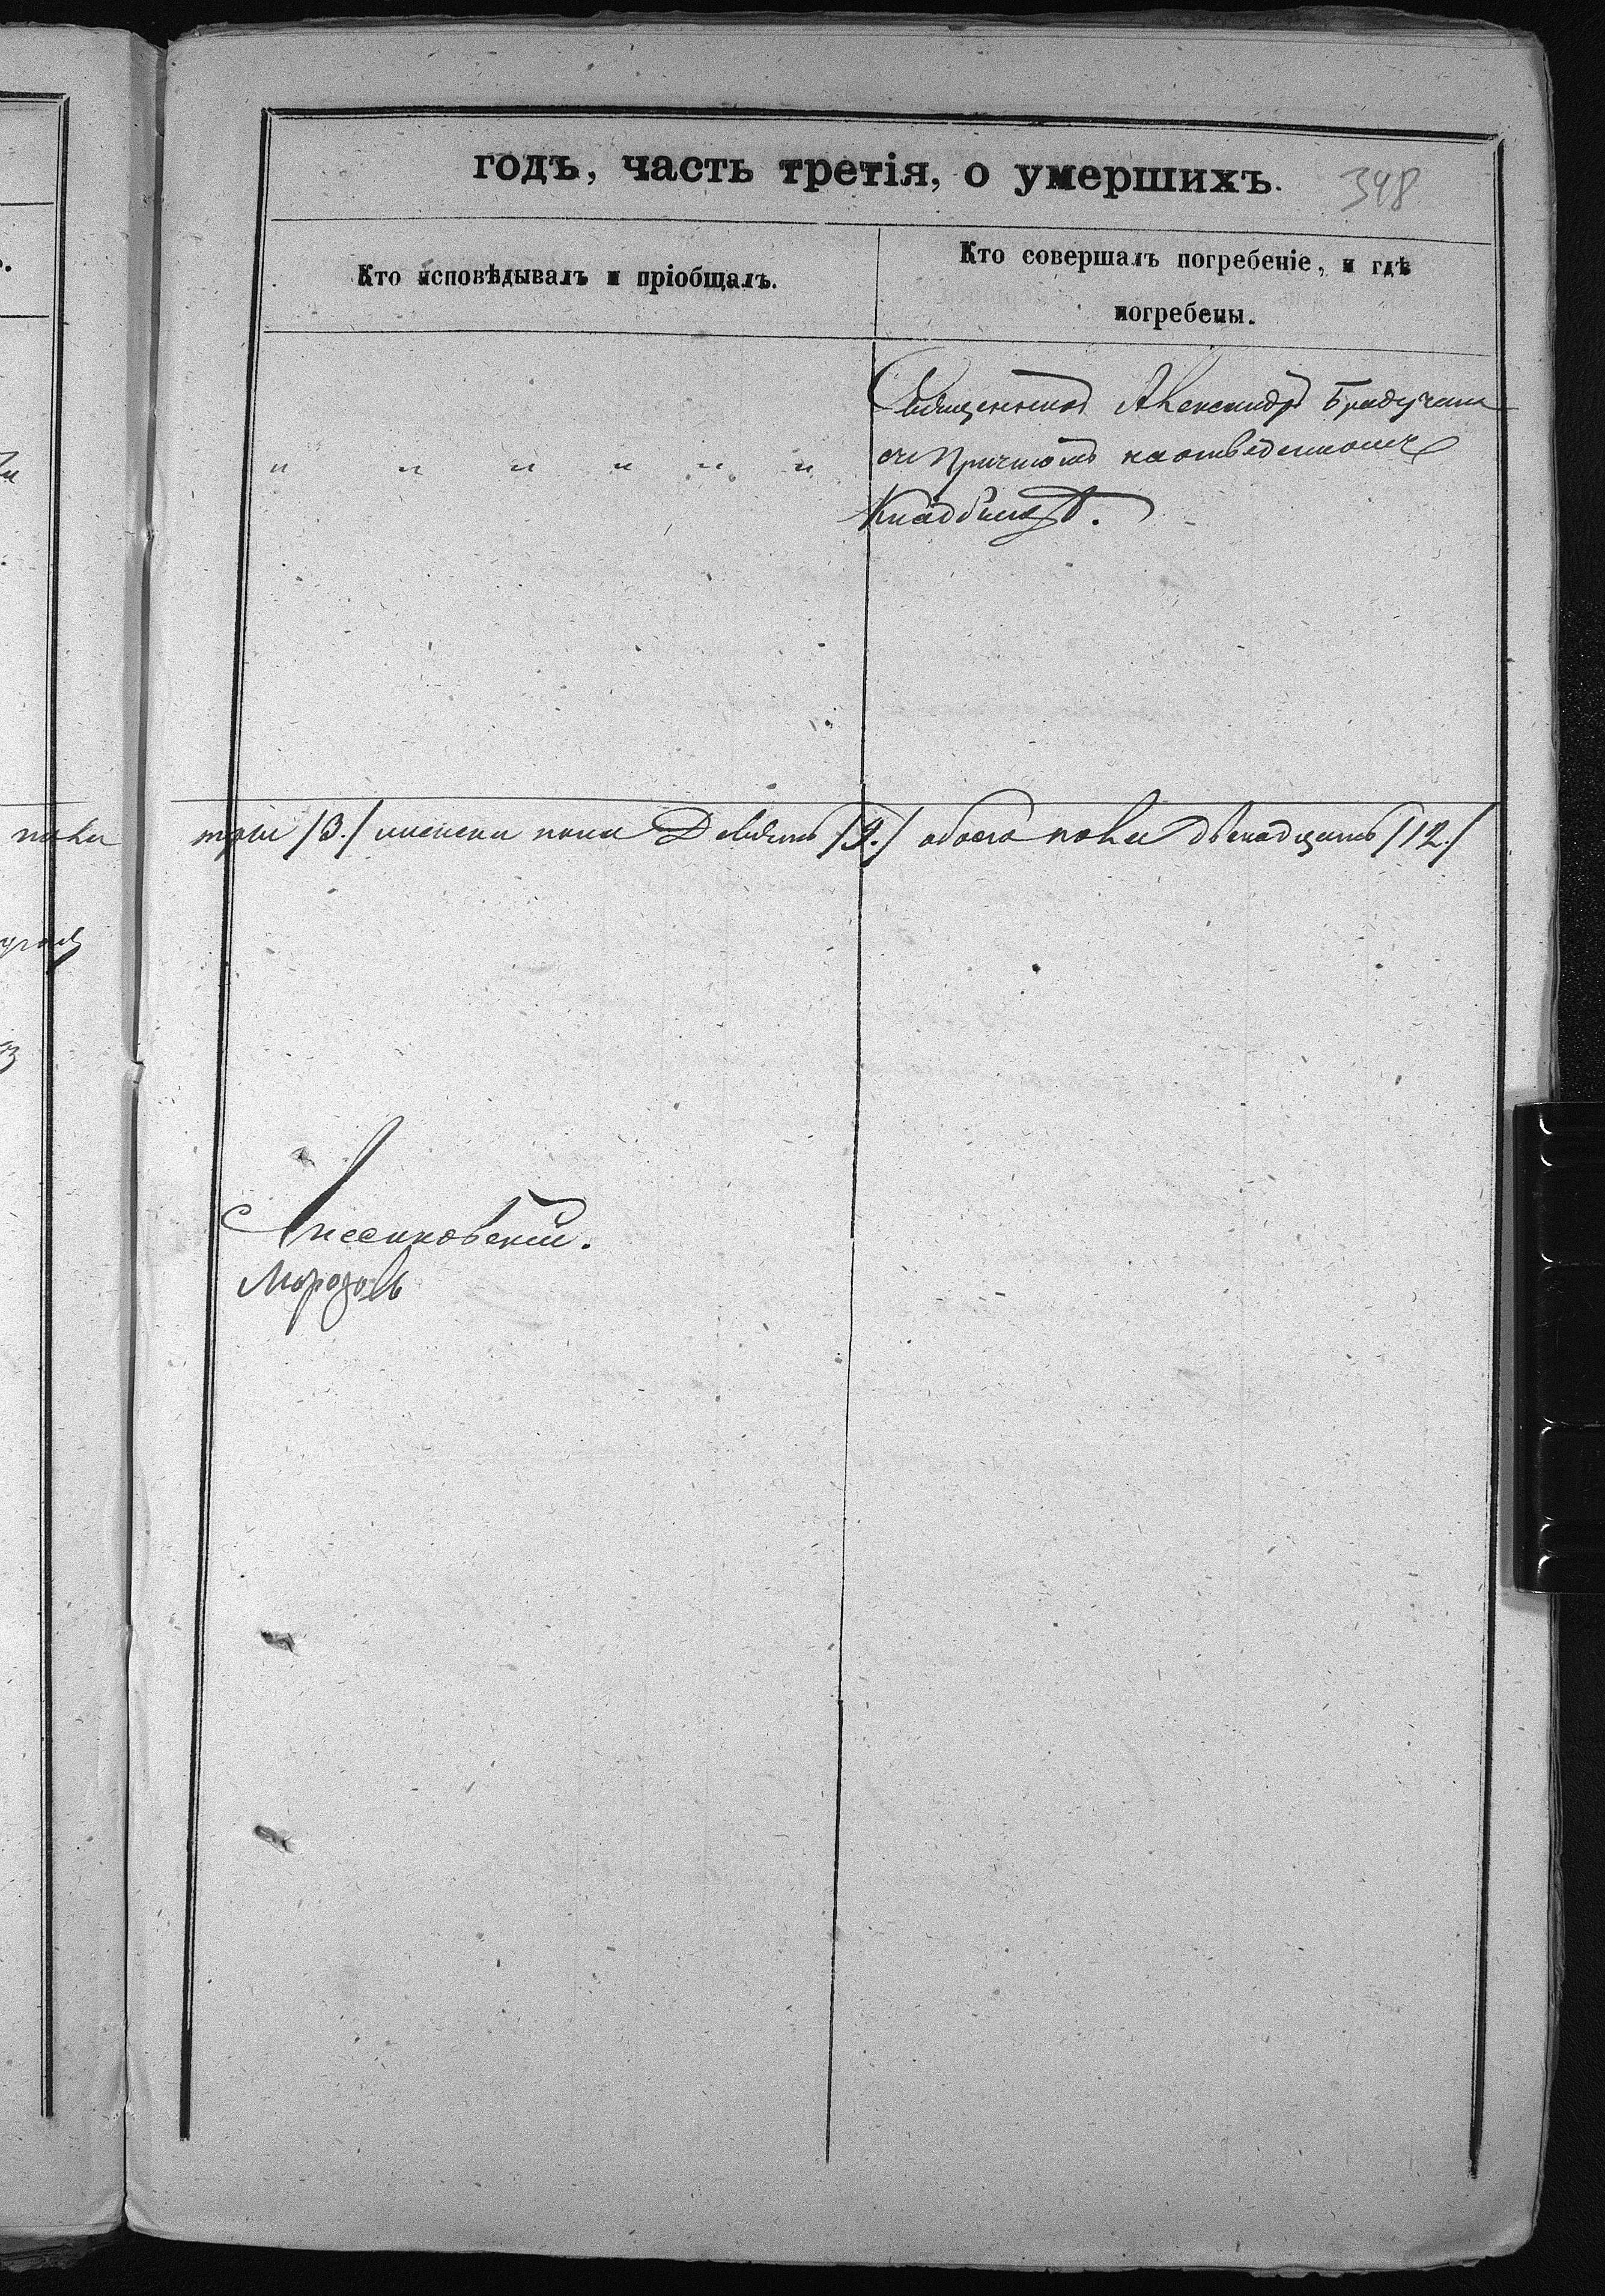 годъ, часть третія, о умершихъ.
348
Кто исповѣдывалъ и пріобщалъ.
Кто совершалъ погребеніе, и гдѣ
погребены.
Священникъ Александръ
съ Причтомъ на отведенномъ
Кладбищѣ.
" " " " " "
пола три /3./ женска пола Девять /9./ обоего пола двенадцать /12./
Морозовъ